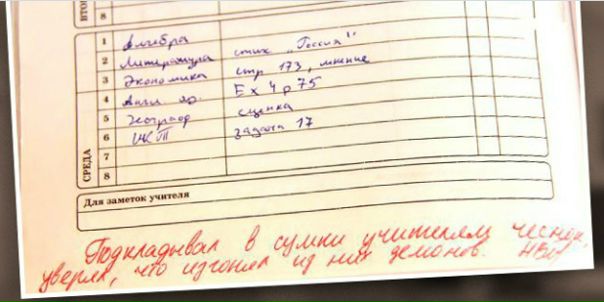 8
1 Алгебра
2 Литература стих „Россия"
3 Экономика стр 173, мнение
4 Англ яз. Ex 4 p 75
5 Географ сценка
6 задача 17
7
8
СРЕДА
Для заметок учителя
Подкладывал в сумки учителям чеснок,
уверял, что изгонял из них демонов.